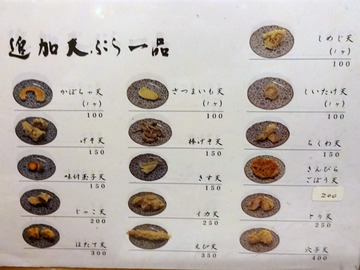 追加天ぷら一品
しめじ天
(1ヶ)
100
かぼちゃ天
(1ヶ)
100
さつまいも天
(1ヶ)
100
しいたけ天
(1ヶ)
100
げそ天
150
棒げそ天
150
ちくわ天
150
味付玉子天
150
きす天
150
きんぴら
ごぼう天
200
じゃこ天
200
イカ天
250
とり天
250
ほたて天
300
えび天
350
穴子天
400